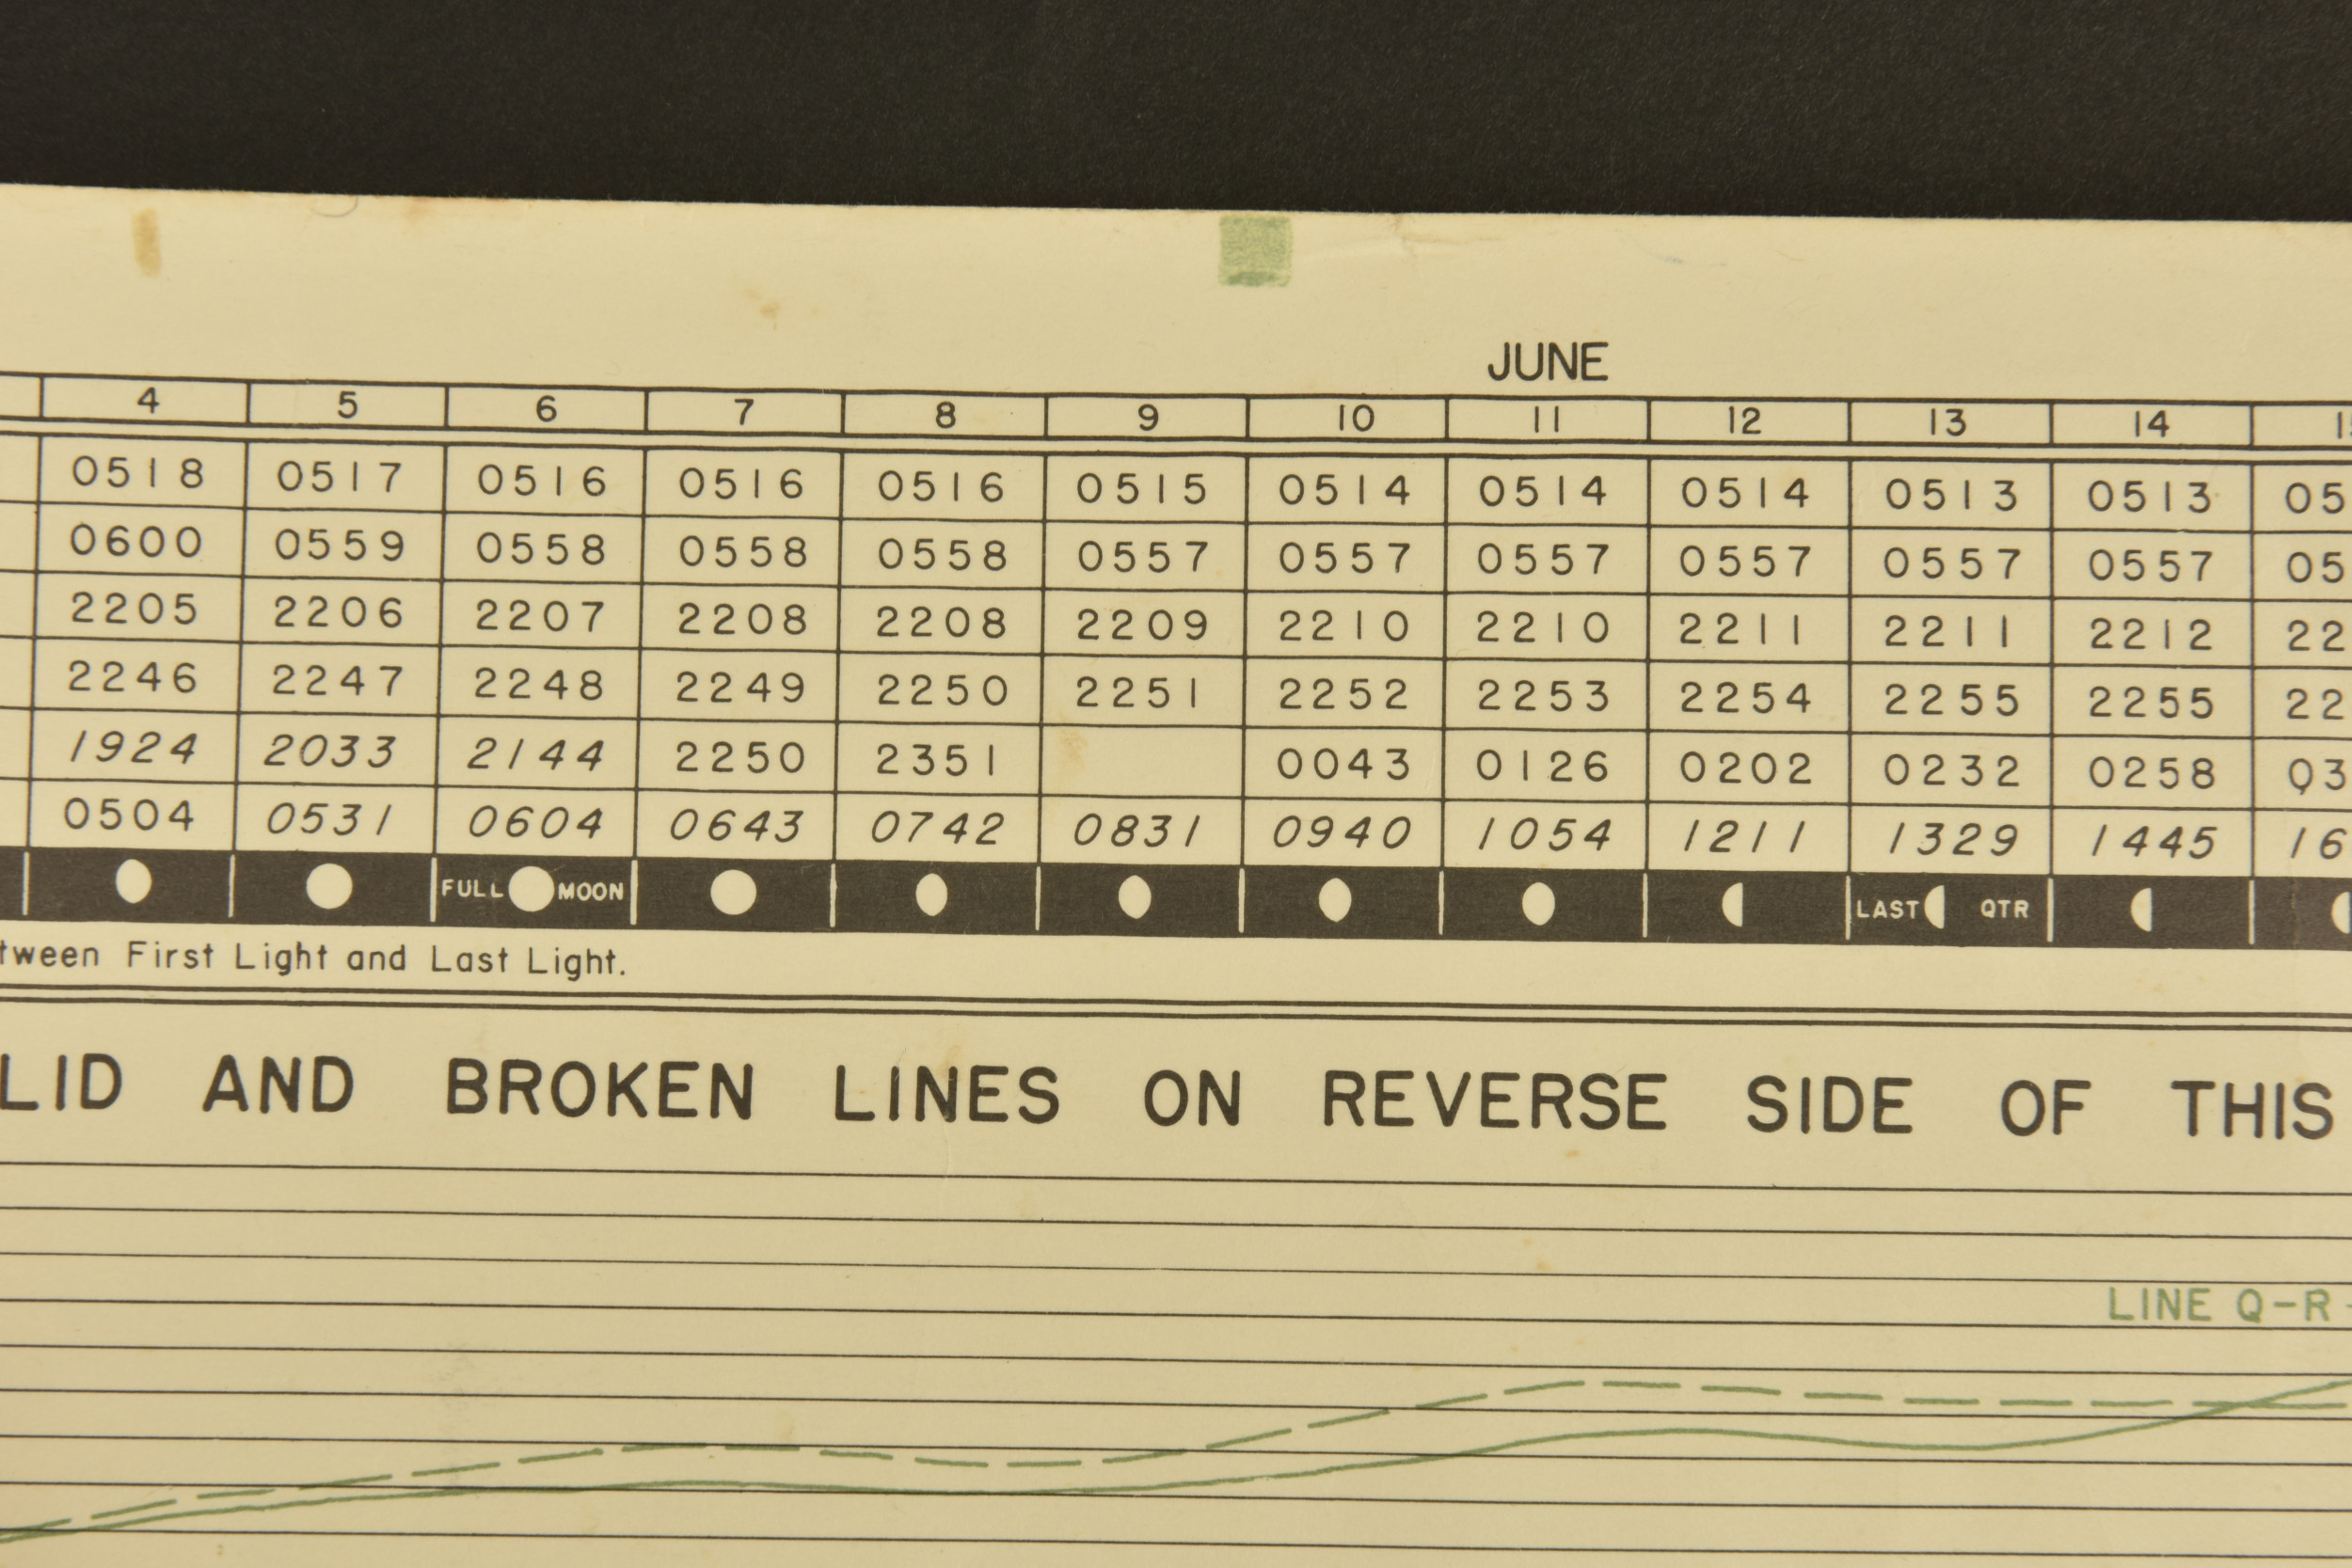 JUNE
4 5 6 7 8 9 10 11 12 13 14
0518 0517 0516 0516 0516 0515 0514 0514 0514 0513 0513 05
0600 0559 0558 0558 0558 0557 0557 0557 0557 0557 0557 05
2205 2206 2207 2208 2208 2209 2210 2210 2211 2211 2212 22
2246 2247 2248 2249 2250 2251 2252 2253 2254 2255 2255 22
1924 2033 2144 2250 2351 0043 0126 0202 0232 0258 03
0504 0531 0604 0643 0742 0831 0940 1054 1211 1329 1445 16
FULL MOON LAST QTR
tween First Light and Last Light.
LID AND BROKEN LINES ON REVERSE SIDE OF THIS
LINE Q-R-